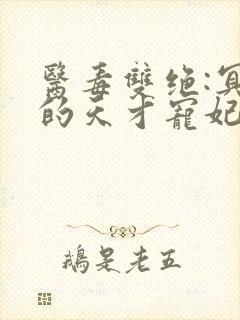 醫毒雙绝:冥
的天才寵妃
鵝是老五